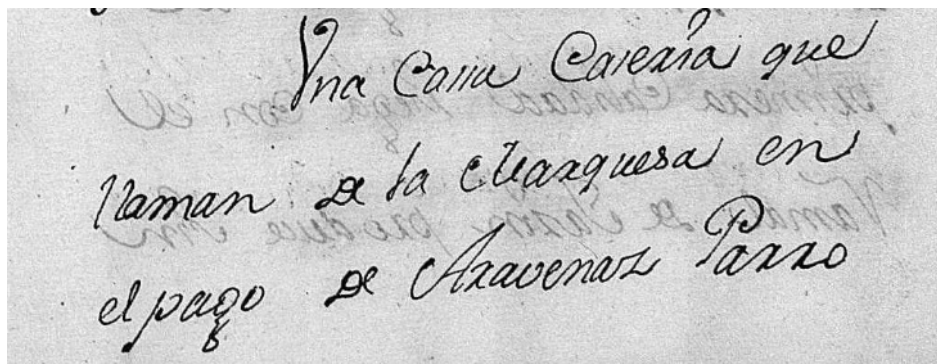 Una Casa Casería que
llaman de la Marquesa en
el pago de Aravenaz Parro